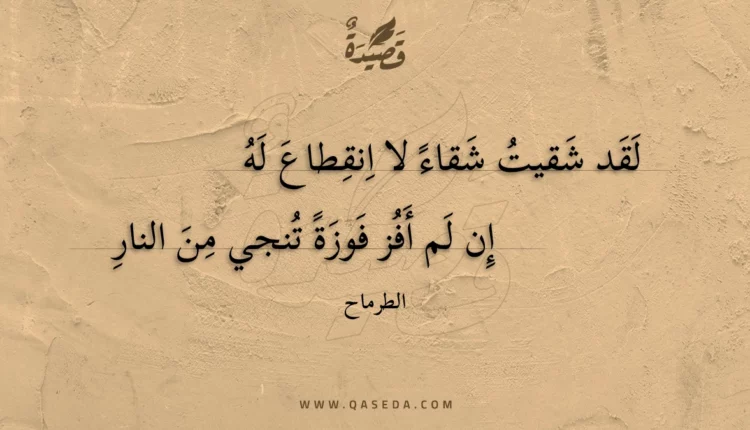 قَصِيْدَةٌ
لَقَد شَقيتُ شَقاءً لا اِنقِطاعَ لَهُ
إِن لَم أَفُز فَوزَةً تُنجي مِنَ النارِ
الطرماح
WWW.QASEDA.COM